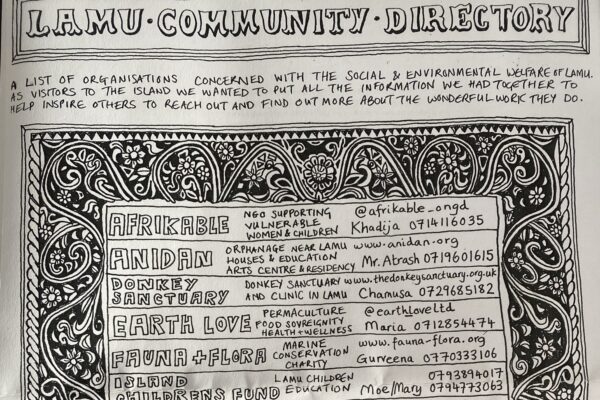 LAMU · COMMUNITY · DIRECTORY
A LIST OF ORGANISATIONS CONCERNED WITH THE SOCIAL & ENVIRONMENTAL WELFARE OF LAMU.
AS VISITORS TO THE ISLAND WE WANTED TO PUT ALL THE INFORMATION WE HAD TOGETHER TO
HELP INSPIRE OTHERS TO REACH OUT AND FIND OUT MORE ABOUT THE WONDERFUL WORK THEY DO.
AFRIKABLE
NGO SUPPORTING
VULNERABLE
WOMEN & CHILDREN
@afrikable_ongd
Khadija 0714116035
ANIDAN
ORPHANAGE NEAR LAMU
HOUSES & EDUCATION
ARTS CENTRE & RESIDENCY
www.anidan.org
Mr. Atrash 0719601615
DONKEY
SANCTUARY
DONKEY SANCTUARY
AND CLINIC IN LAMU
www.thedonkeysanctuary.org.uk
Chamusa 0729685182
EARTH LOVE
PERMACULTURE
FOOD SOVREIGNITY
HEALTH + WELLNESS
@earthloveltd
Maria 0712854474
FAUNA + FLORA
MARINE
CONSERVATION
CHARITY
www.fauna-flora.org
Gurveena 0770333106
ISLAND
CHILDRENS FUND
LAMU CHILDREN
EDUCATION
0793894017
Moe/Mary 0794773063